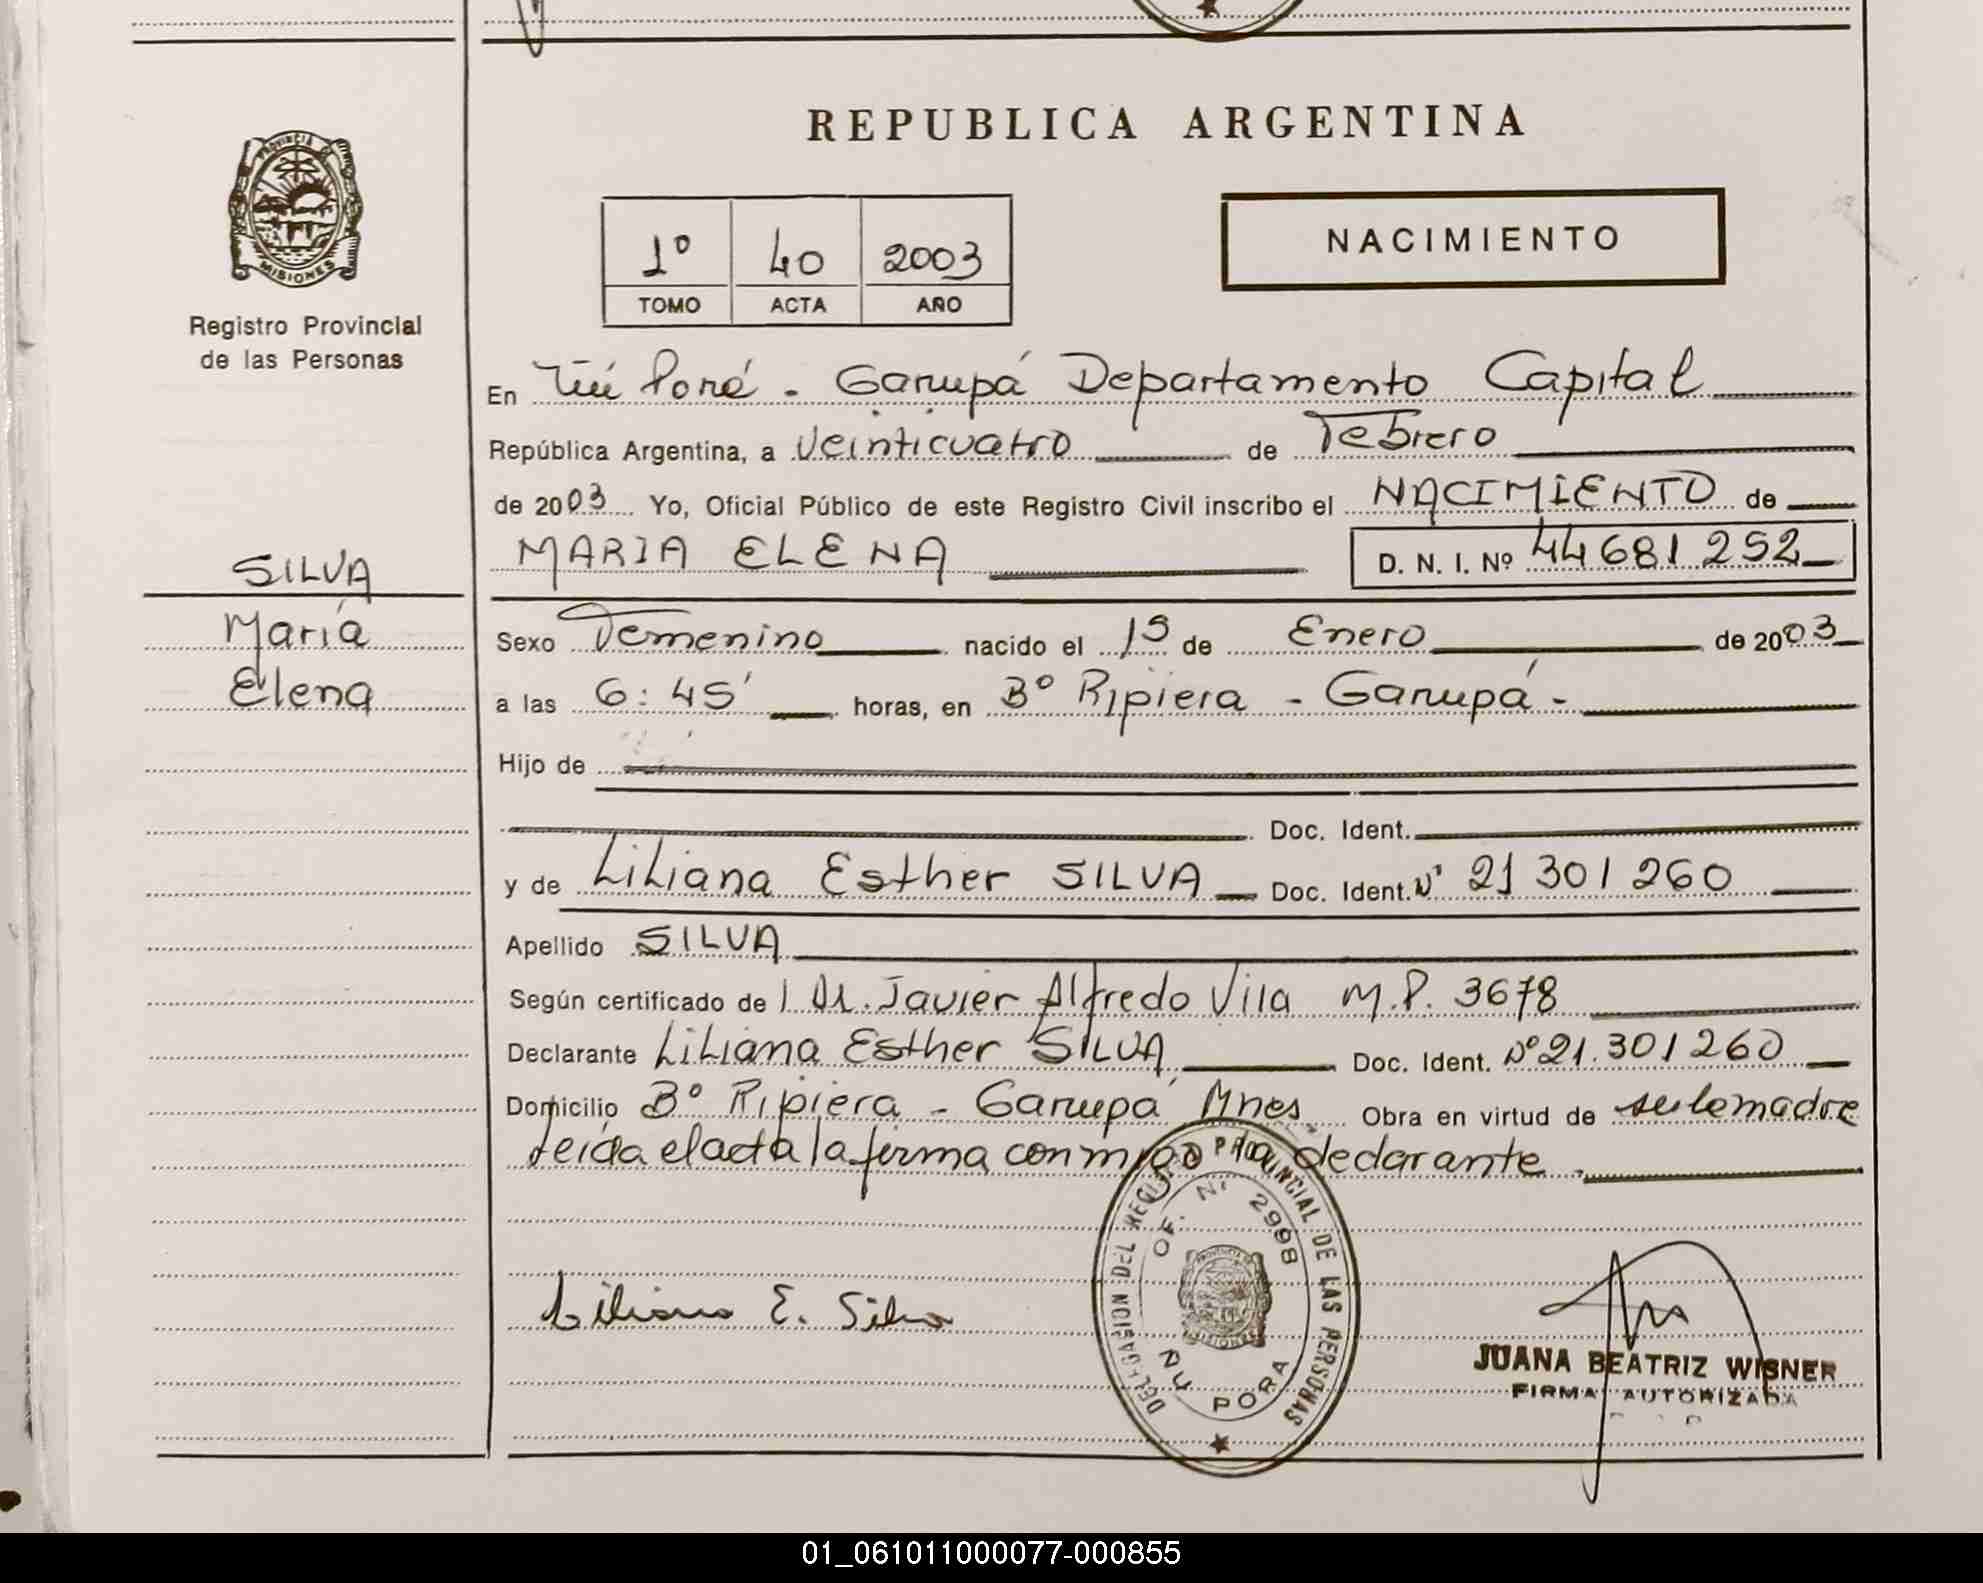 REPUBLICA ARGENTINA
PROVINCIA DE MISIONES
Registro Provincial
de las Personas
1º 40 2003
TOMO ACTA AÑO
NACIMIENTO
En Ñú Porá - Garupá Departamento Capital
República Argentina, a veinticuatro de Febrero
de 2003 Yo, Oficial Público de este Registro Civil inscribo el NACIMIENTO de
MARIA ELENA D. N. I. Nº 44681252
SILVA
María
Elena
Sexo Femenino nacido el 15 de Enero de 2003
a las 6:45' horas, en Bº Ripiera - Garupá -
Hijo de
Doc. Ident.
y de Liliana Esther SILVA Doc. Ident. Nº 21 301 260
Apellido SILVA
Según certificado de Dr. Javier Alfredo Vila M.P. 3678
Declarante Liliana Esther SILVA Doc. Ident. Nº 21.301260
Domicilio Bº Ripiera - Garupá Mnes Obra en virtud de ser la madre
leída el acta la firma conmigo la declarante.
DELEGACION DEL REGISTRO PROVINCIAL DE LAS PERSONAS
OF. Nº 2998
PROVINCIA DE MISIONES
ÑU PORA
Liliana E. Silva
JUANA BEATRIZ WISNER
FIRMA AUTORIZADA
01_061011000077-000855